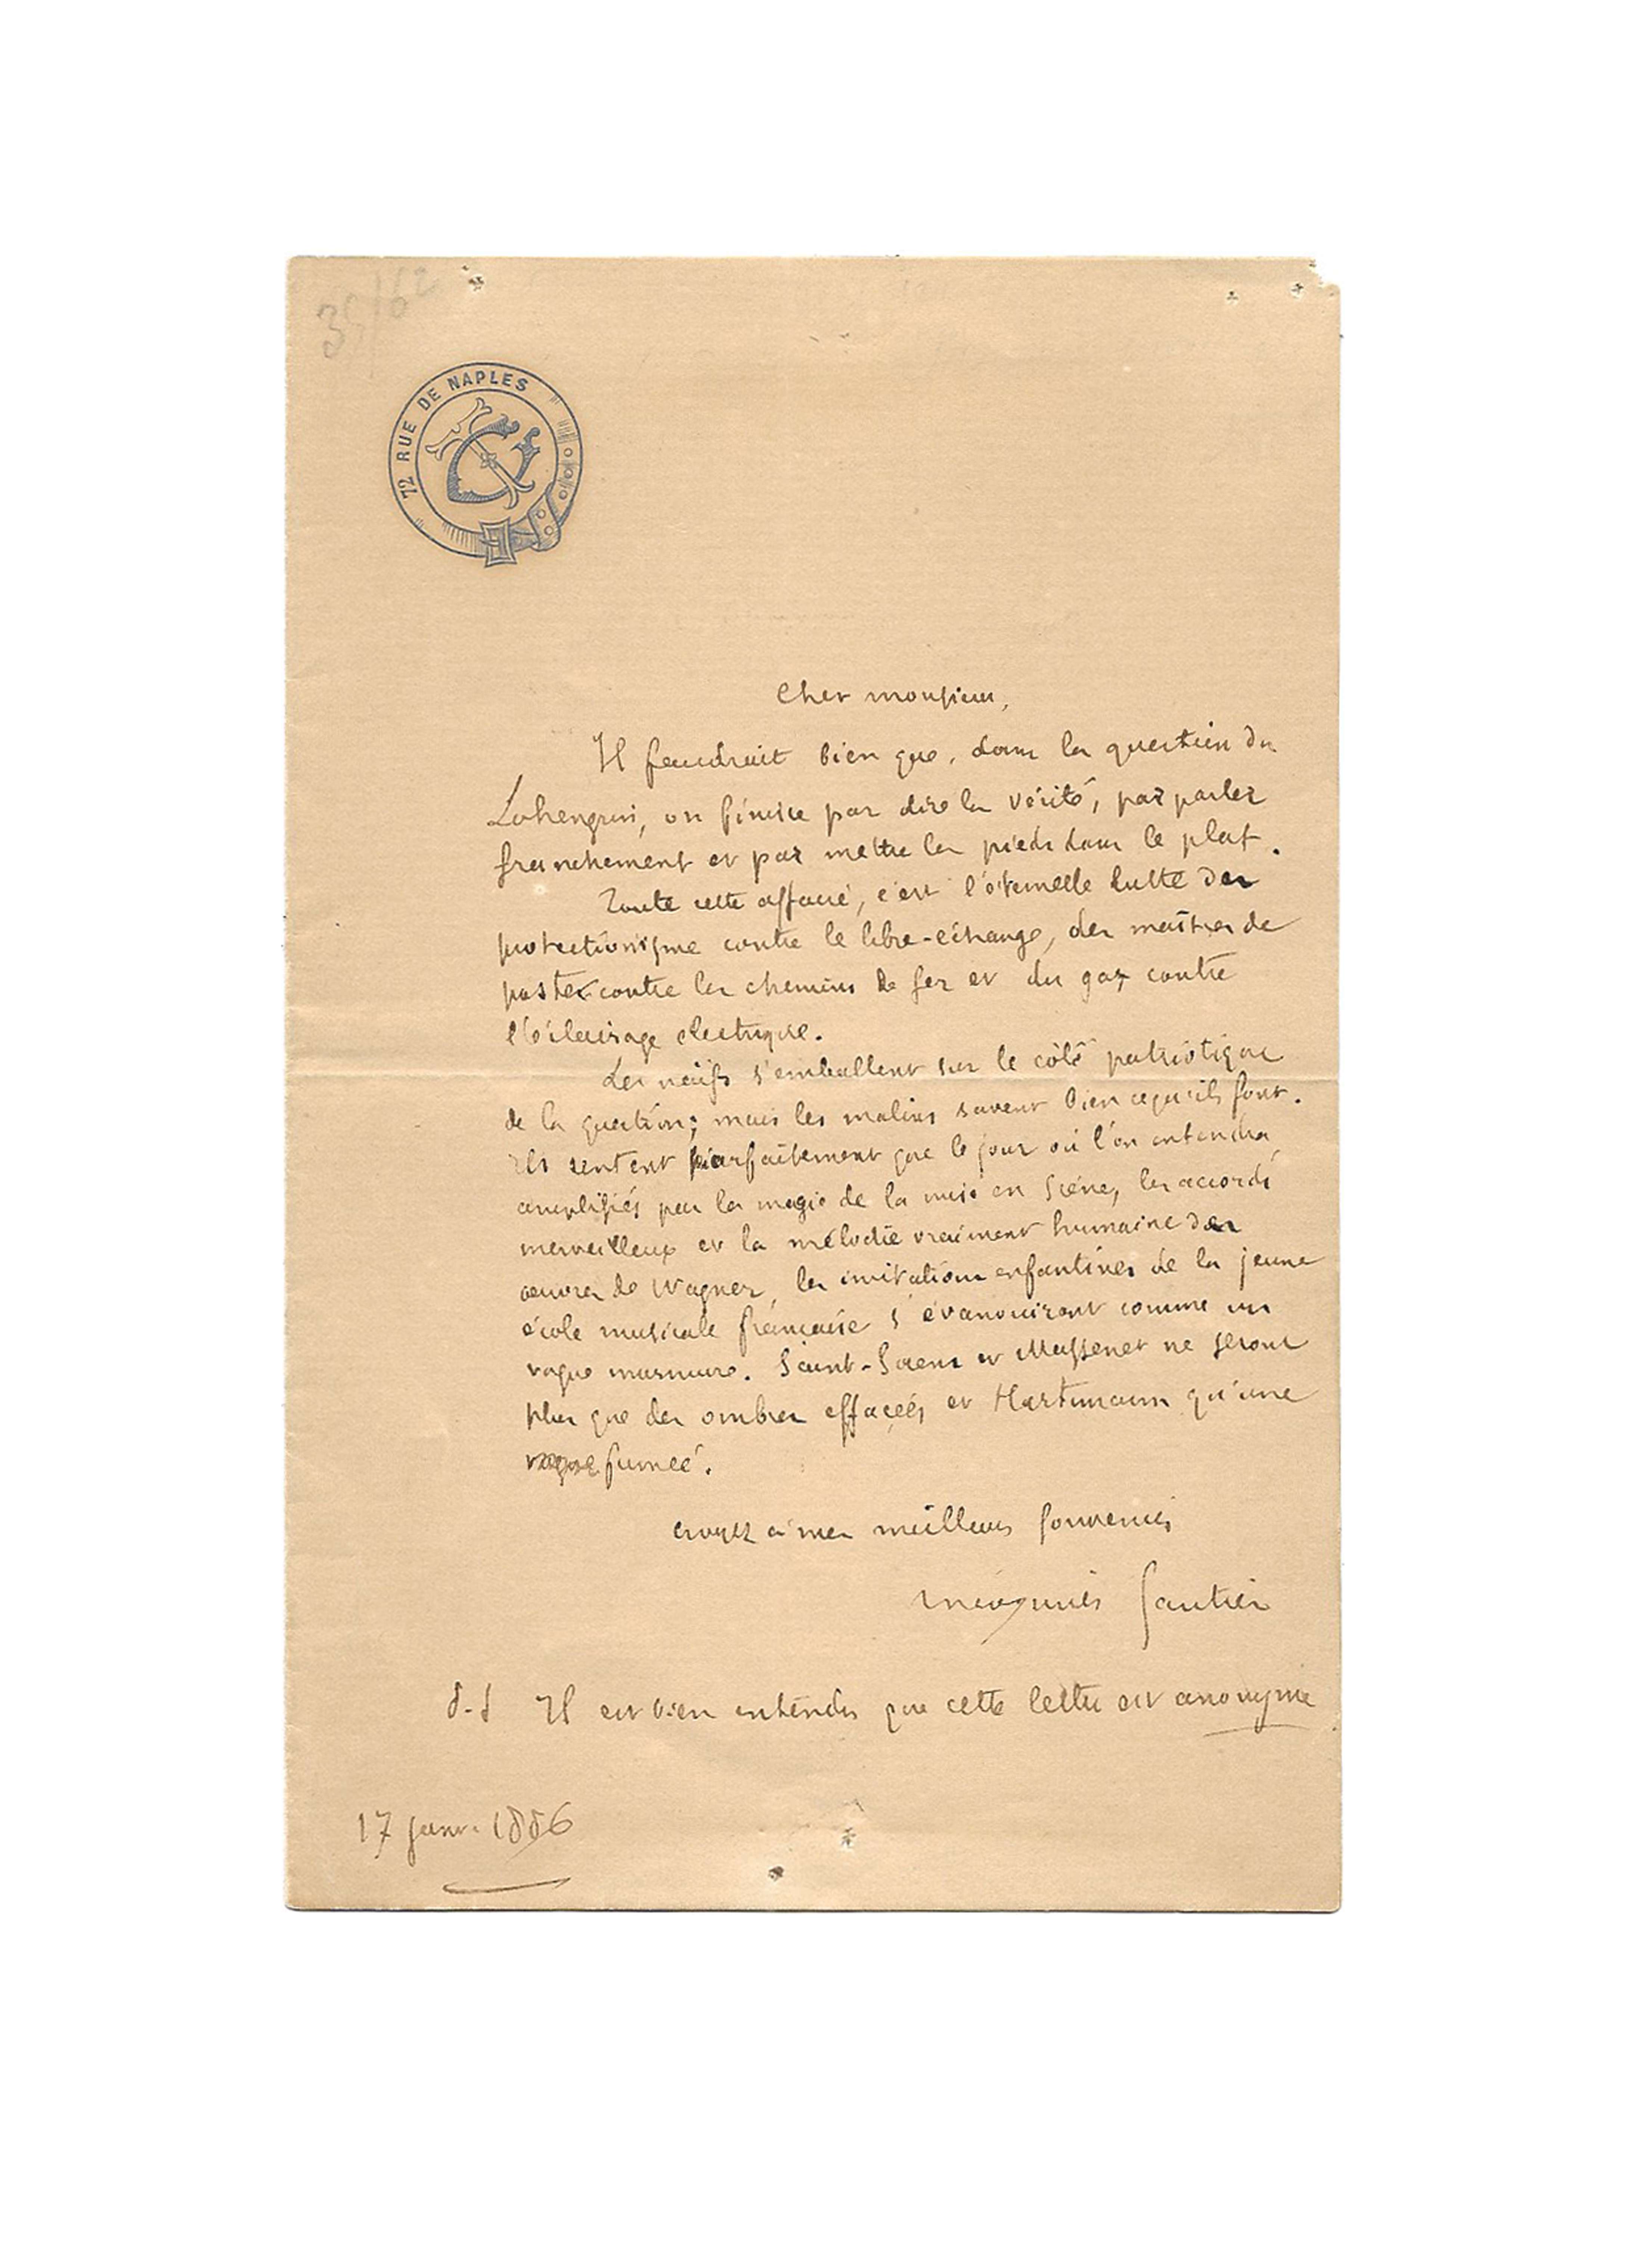 35/62
72 RUE DE NAPLES
Cher monsieur,
Il faudrait bien que, dans la question du
Lohengrin, on finisse par dire la vérité, par parler
franchement et par mettre les pieds dans le plat.
Toute cette affaire, c'est l'éternelle lutte des
protectionisme contre le libre-échange, des maîtres de
poste contre les chemins de fer et du gaz contre
l'éclairage électrique.
Les naïfs s'emballent sur le côté patriotique
de la question; mais les malins savent bien ce qu'ils font.
Ils sentent parfaitement que le jour où l'on entendra,
amplifiés par la magie de la mise en scène, les accords
merveilleux et la mélodie vraiment humaine des
œuvres de Wagner, les imitations enfantines de la jeune
école musicale française s'évanouiront comme un
vague murmure. Saint-Saens et Massenet ne seront
plus que des ombres effacées et Hartmann qu'une
vague fumée.
Croyez à mes meilleurs souvenirs
Gautier
P.S Il est bien entendu que cette lettre est anonyme
17 janv. 1886